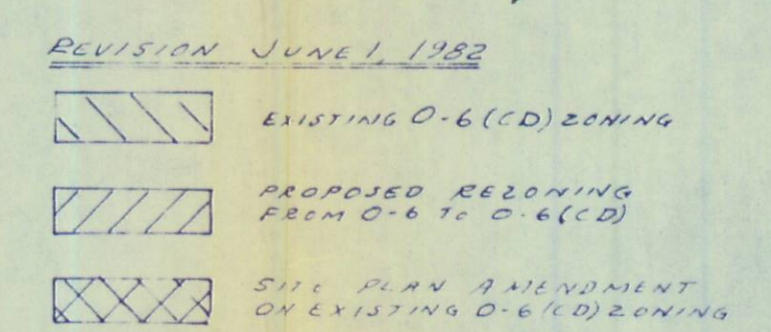 REVISION JUNE 1, 1982
EXISTING O-6 (CD) ZONING
PROPOSED REZONING
FROM O-6 TO O-6(CD)
SITE PLAN AMENDMENT
ON EXISTING O-6 (CD) ZONING